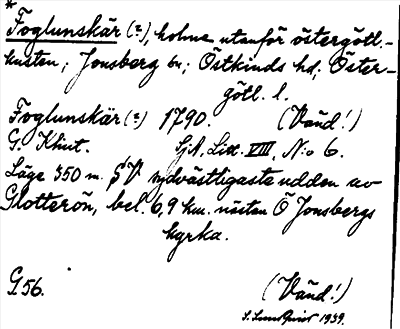 *
Foglunskär (?), holme utanför östergötl.-
kusten; Jonsberg sn; Östkinds hd; Öster-
götl. l.
Foglunskär (?) 1790. (Vänd!)
G. Klint. SjA, Litt. VIII, N:o 6.
Läge 350 m. SV sydvästligaste udden av
Glotterön, bel. 6,9 km. nästen Ö Jonsbergs
kyrka.
G56. (Vänd!)
1939.